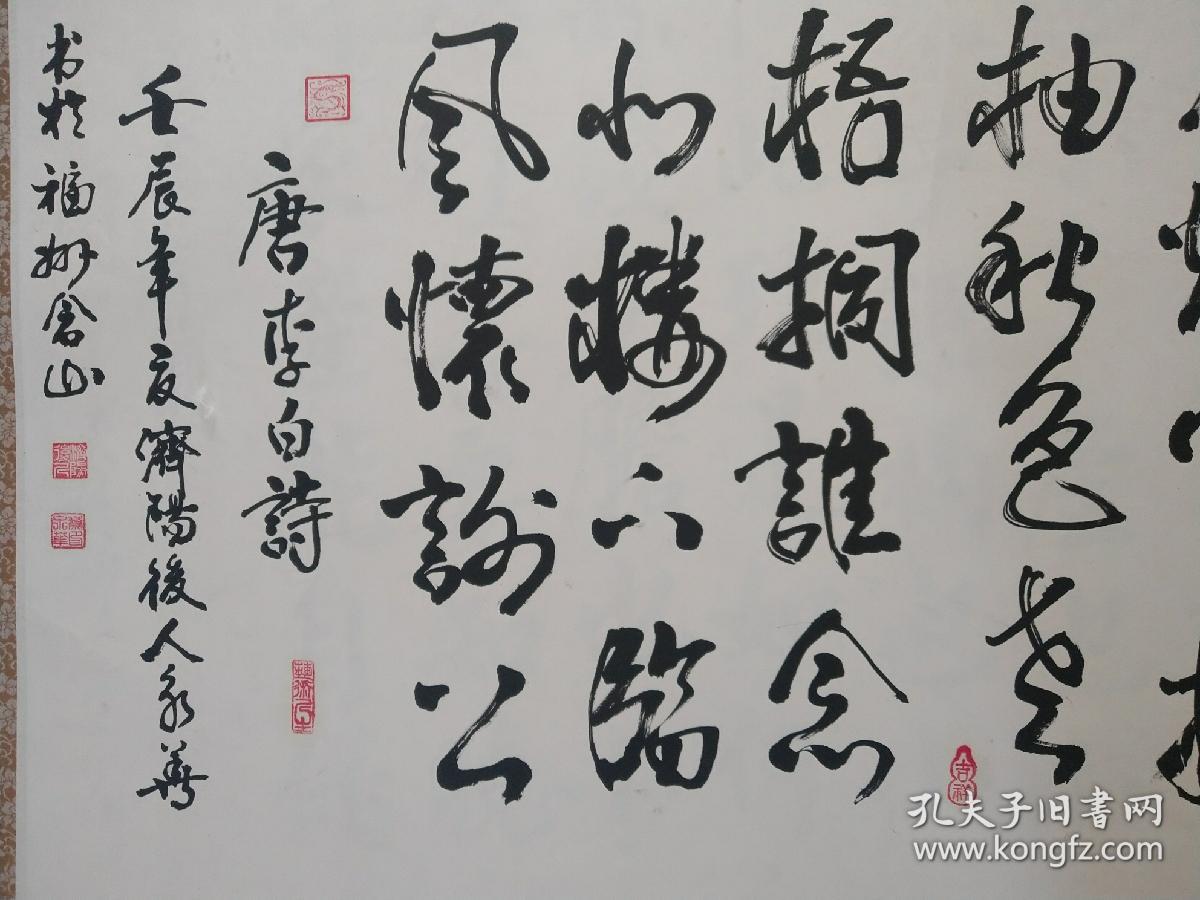 柚秋色老
梧桐誰念
北樓上臨
風懷謝公
唐李白詩
壬辰年夏濟陽後人永華
书於福州倉山
吉祥
孔夫子旧书网
www.kongfz.com